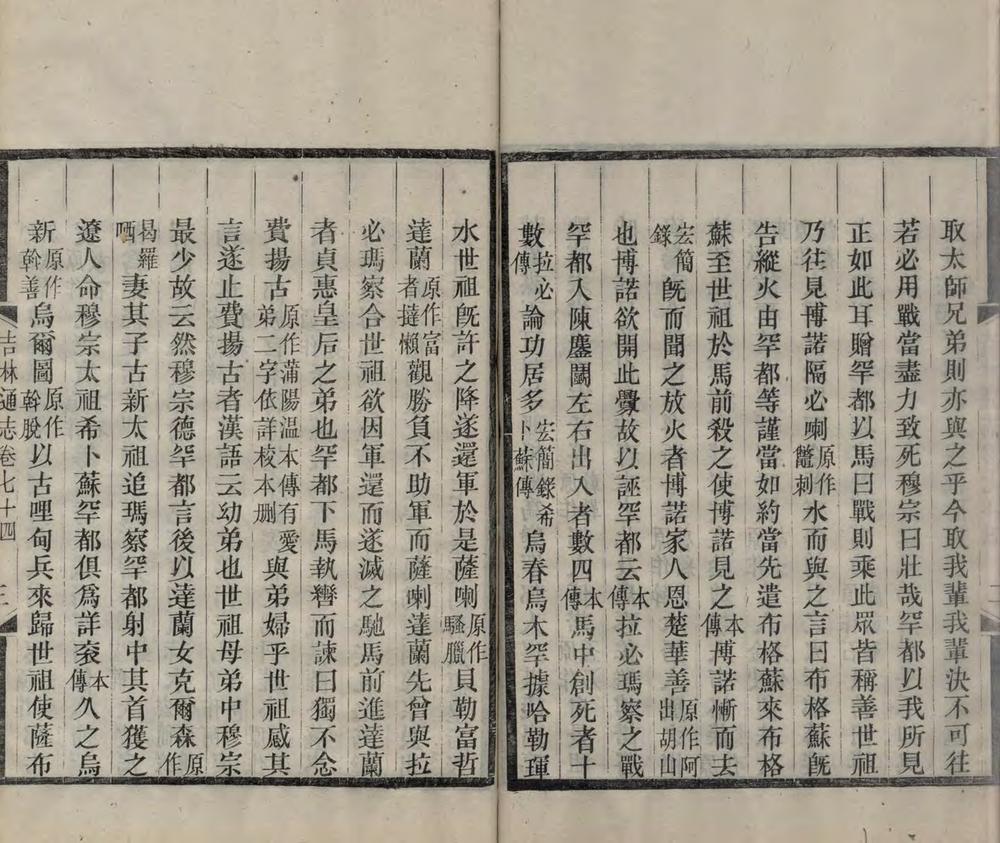 取太師兄弟則亦與之乎今取我輩我輩決不可往
若必用戰當盡力致死穆宗曰壯哉罕都以我所見
正如此耳贈罕都以馬曰戰則乘此眾皆稱善世祖
乃往見博諾隔必喇原作鼈刺水而與之言曰布格蘇旣
告縱火由罕都等謹當如約當先遣布格蘇來布格
蘇至世祖於馬前殺之使博諾見之本傳博諾慚而去
宏簡錄旣而聞之放火者博諾家人恩楚華善原作阿出胡山
也博諾欲開此釁故以誣罕都云本傳拉必瑪察之戰
罕都入陳鏖鬭左右出入者數四本傳馬中創死者十
數拉必傳論功居多宏簡錄希卜蘇傳烏春烏木罕據哈勒琿
水世祖旣許之降遂還軍於是薩喇原作騷臘貝勒富哲
達蘭原作富者撻懶觀勝負不助軍而薩喇達蘭先曾與拉
必瑪察合世祖欲因軍還而遂滅之馳馬前進達蘭
者貞惠皇后之弟也罕都下馬執轡而諫曰獨不念
費揚古原作蒲陽溫本傳有愛弟二字依詳校本刪與弟婦乎世祖感其
言遂止費揚古者漢語云幼弟也世祖母弟中穆宗
最少故云然穆宗德罕都言後以達蘭女克爾森原作
曷羅哂妻其子古新太祖追瑪察罕都射中其首獲之
遼人命穆宗太祖希卜蘇罕都俱爲詳衮本傳久之烏
新原作斡善烏爾圖原作斡脫以古哩甸兵來歸世祖使薩布
吉林通志卷七十四
三